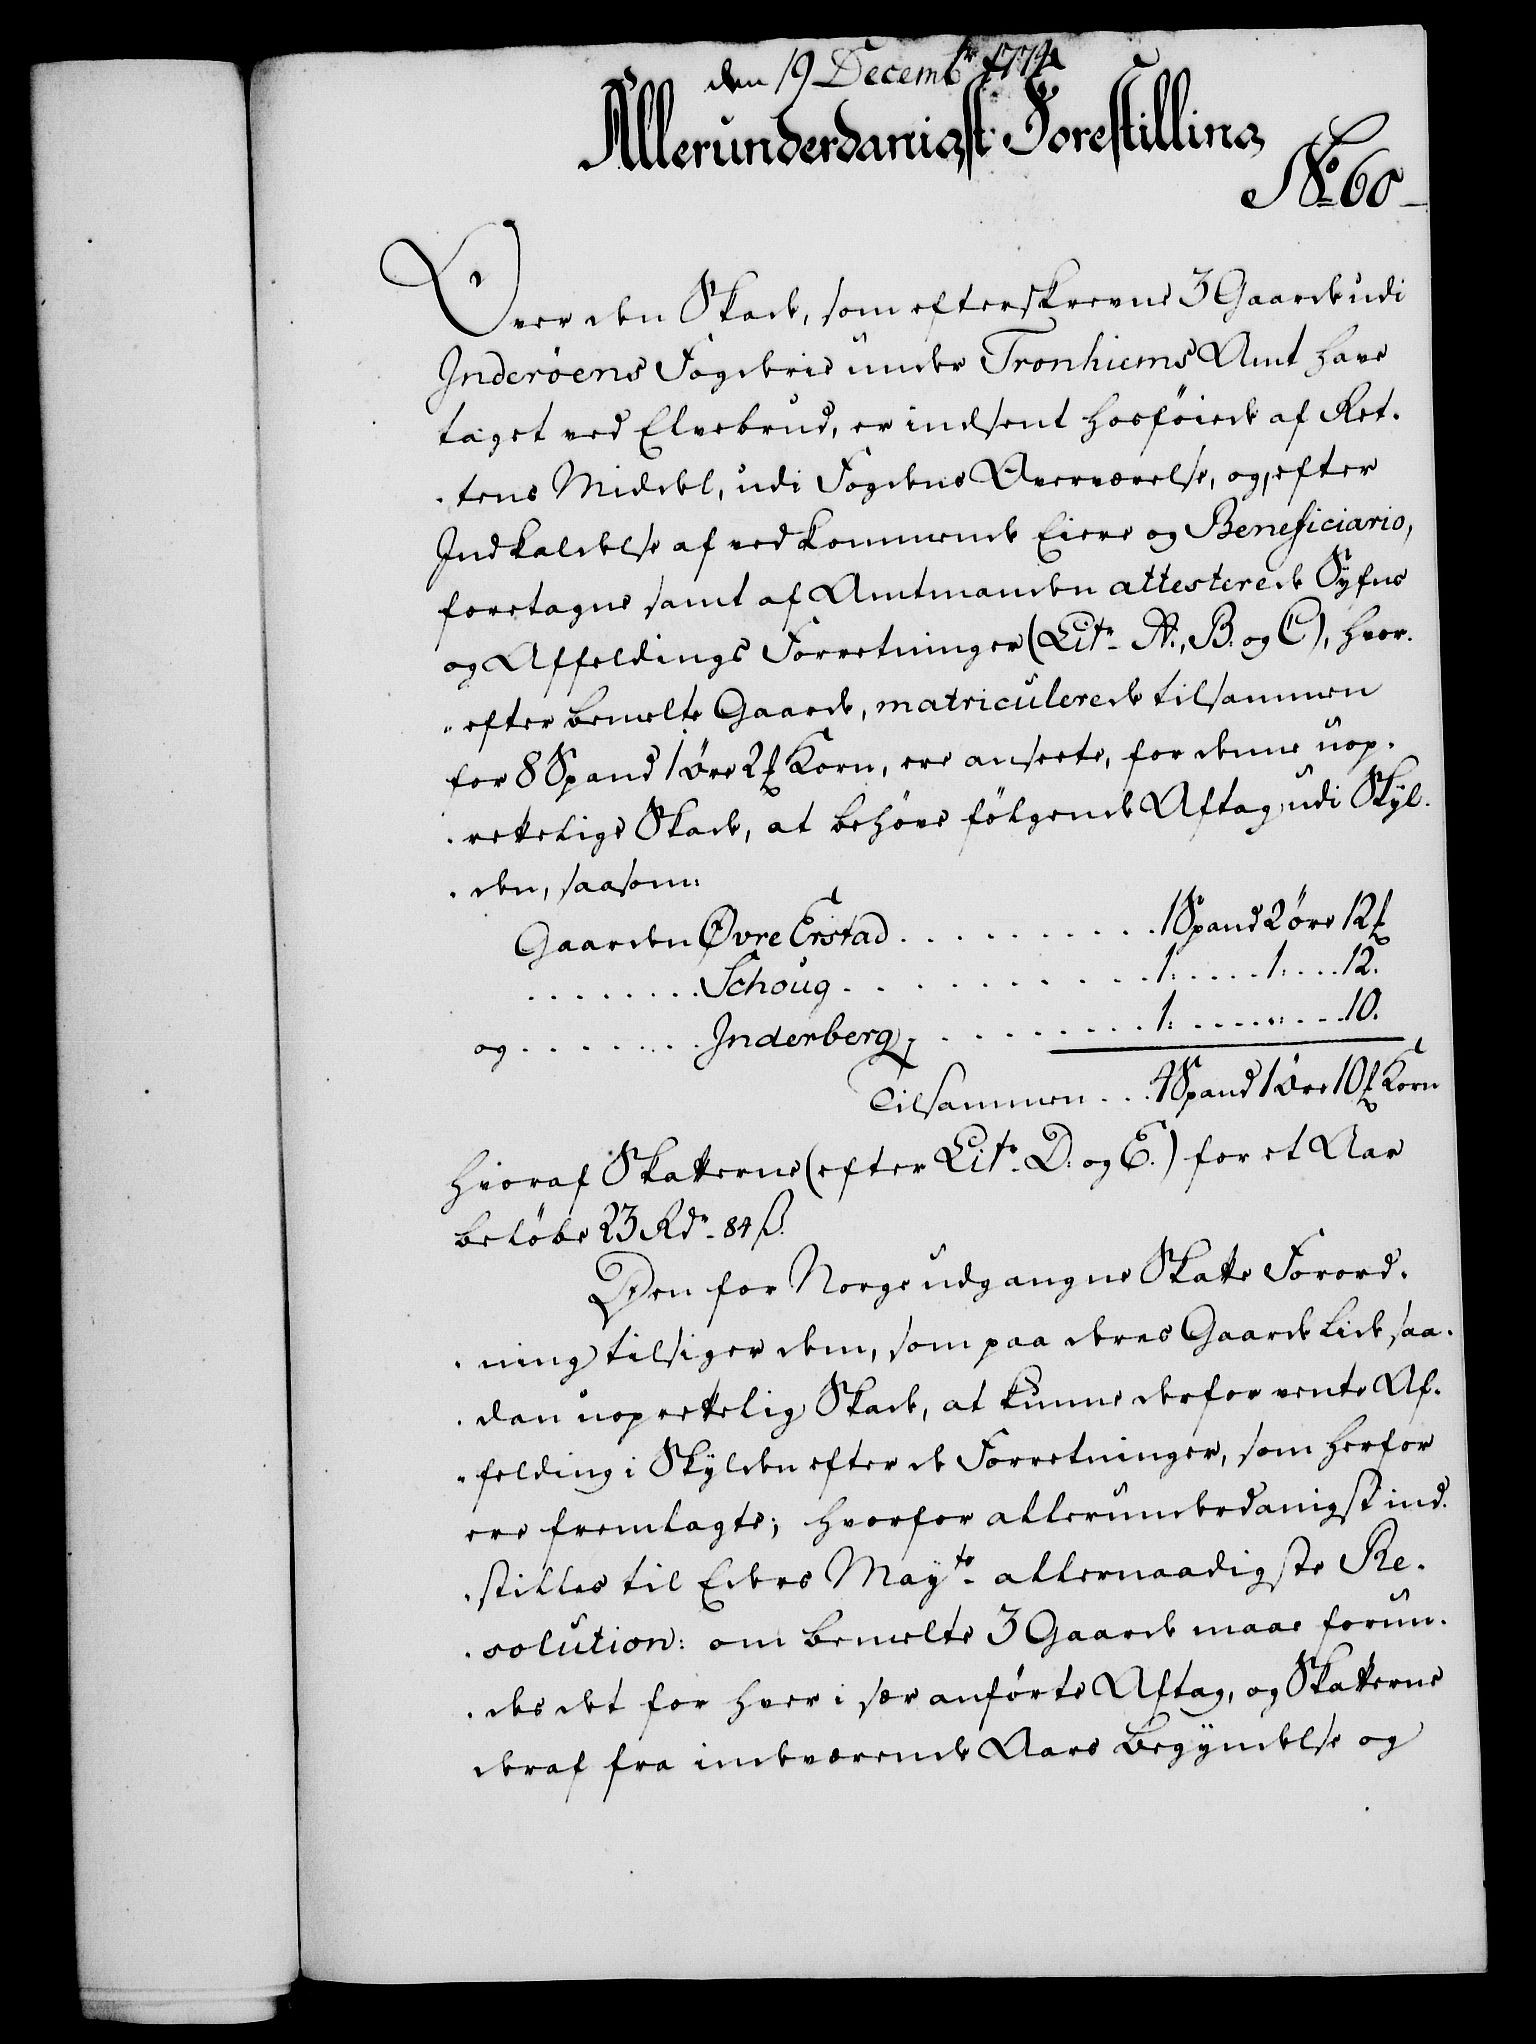 den 19 Decembr 1774
Allerunderdanigst Forestilling
No 60
Over den Skade, som efterskrevne 3 Gaarde udi
Inderöens Fogderie under Tronhiems Amt have
taget ved Elvebrud, er indsent hosföiede af Ret-
-tens Middel, udi Fogdens Overværelse, og, efter
Indkaldelse af vedkommende Eiere og Beneficiario,
foretagne samt af Amtmanden attesterede Syfns
og Affældings Forretninger (Litr. A., B. og C), hvor-
-efter bemelte Gaarde, matriculerede tilsammen
for 8 Spand 1 öre 2 ℔ Korn, ere anseete, for denne uop-
-rettelige Skade, at behöve fölgende Aftag udi Skyl-
-den, saasom:
Gaarden Øvre Erstad . . . . . . . . . . 1 Spand 2 öre 12 ℔
. . . . . . . . Schoug . . . . . . . . . . . . 1: . . . . . 1: . . . . 12.
og . . . . . . . . Inderberg . . . . . . . . . 1: . . . . . " . . . . 10.
Tilsammen . . . 4 Spand 1 öre 10 ℔ Korn
hvoraf Skatterne (efter Litr. D. og E.) for et Aar
belöbe 23 Rdr. 84 ß.
Den for Norge udgangne Skatte Forord-
-ning tilsiger dem, som paa deres Gaarde lide saa-
-dan uoprettelig Skade, at kunne derfor vente Af-
-felding i Skylden efter de Forretninger, som herfor
ere fremlagte; hvorfor allerunderdanigst ind-
-stilles til Eders Mayts. allernaadigste Re-
-solution: om bemelte 3 Gaarde maae forun-
-des det for hver i sær anförte Aftag, og Skatterne
deraf fra indeværende Aars Begyndelse og